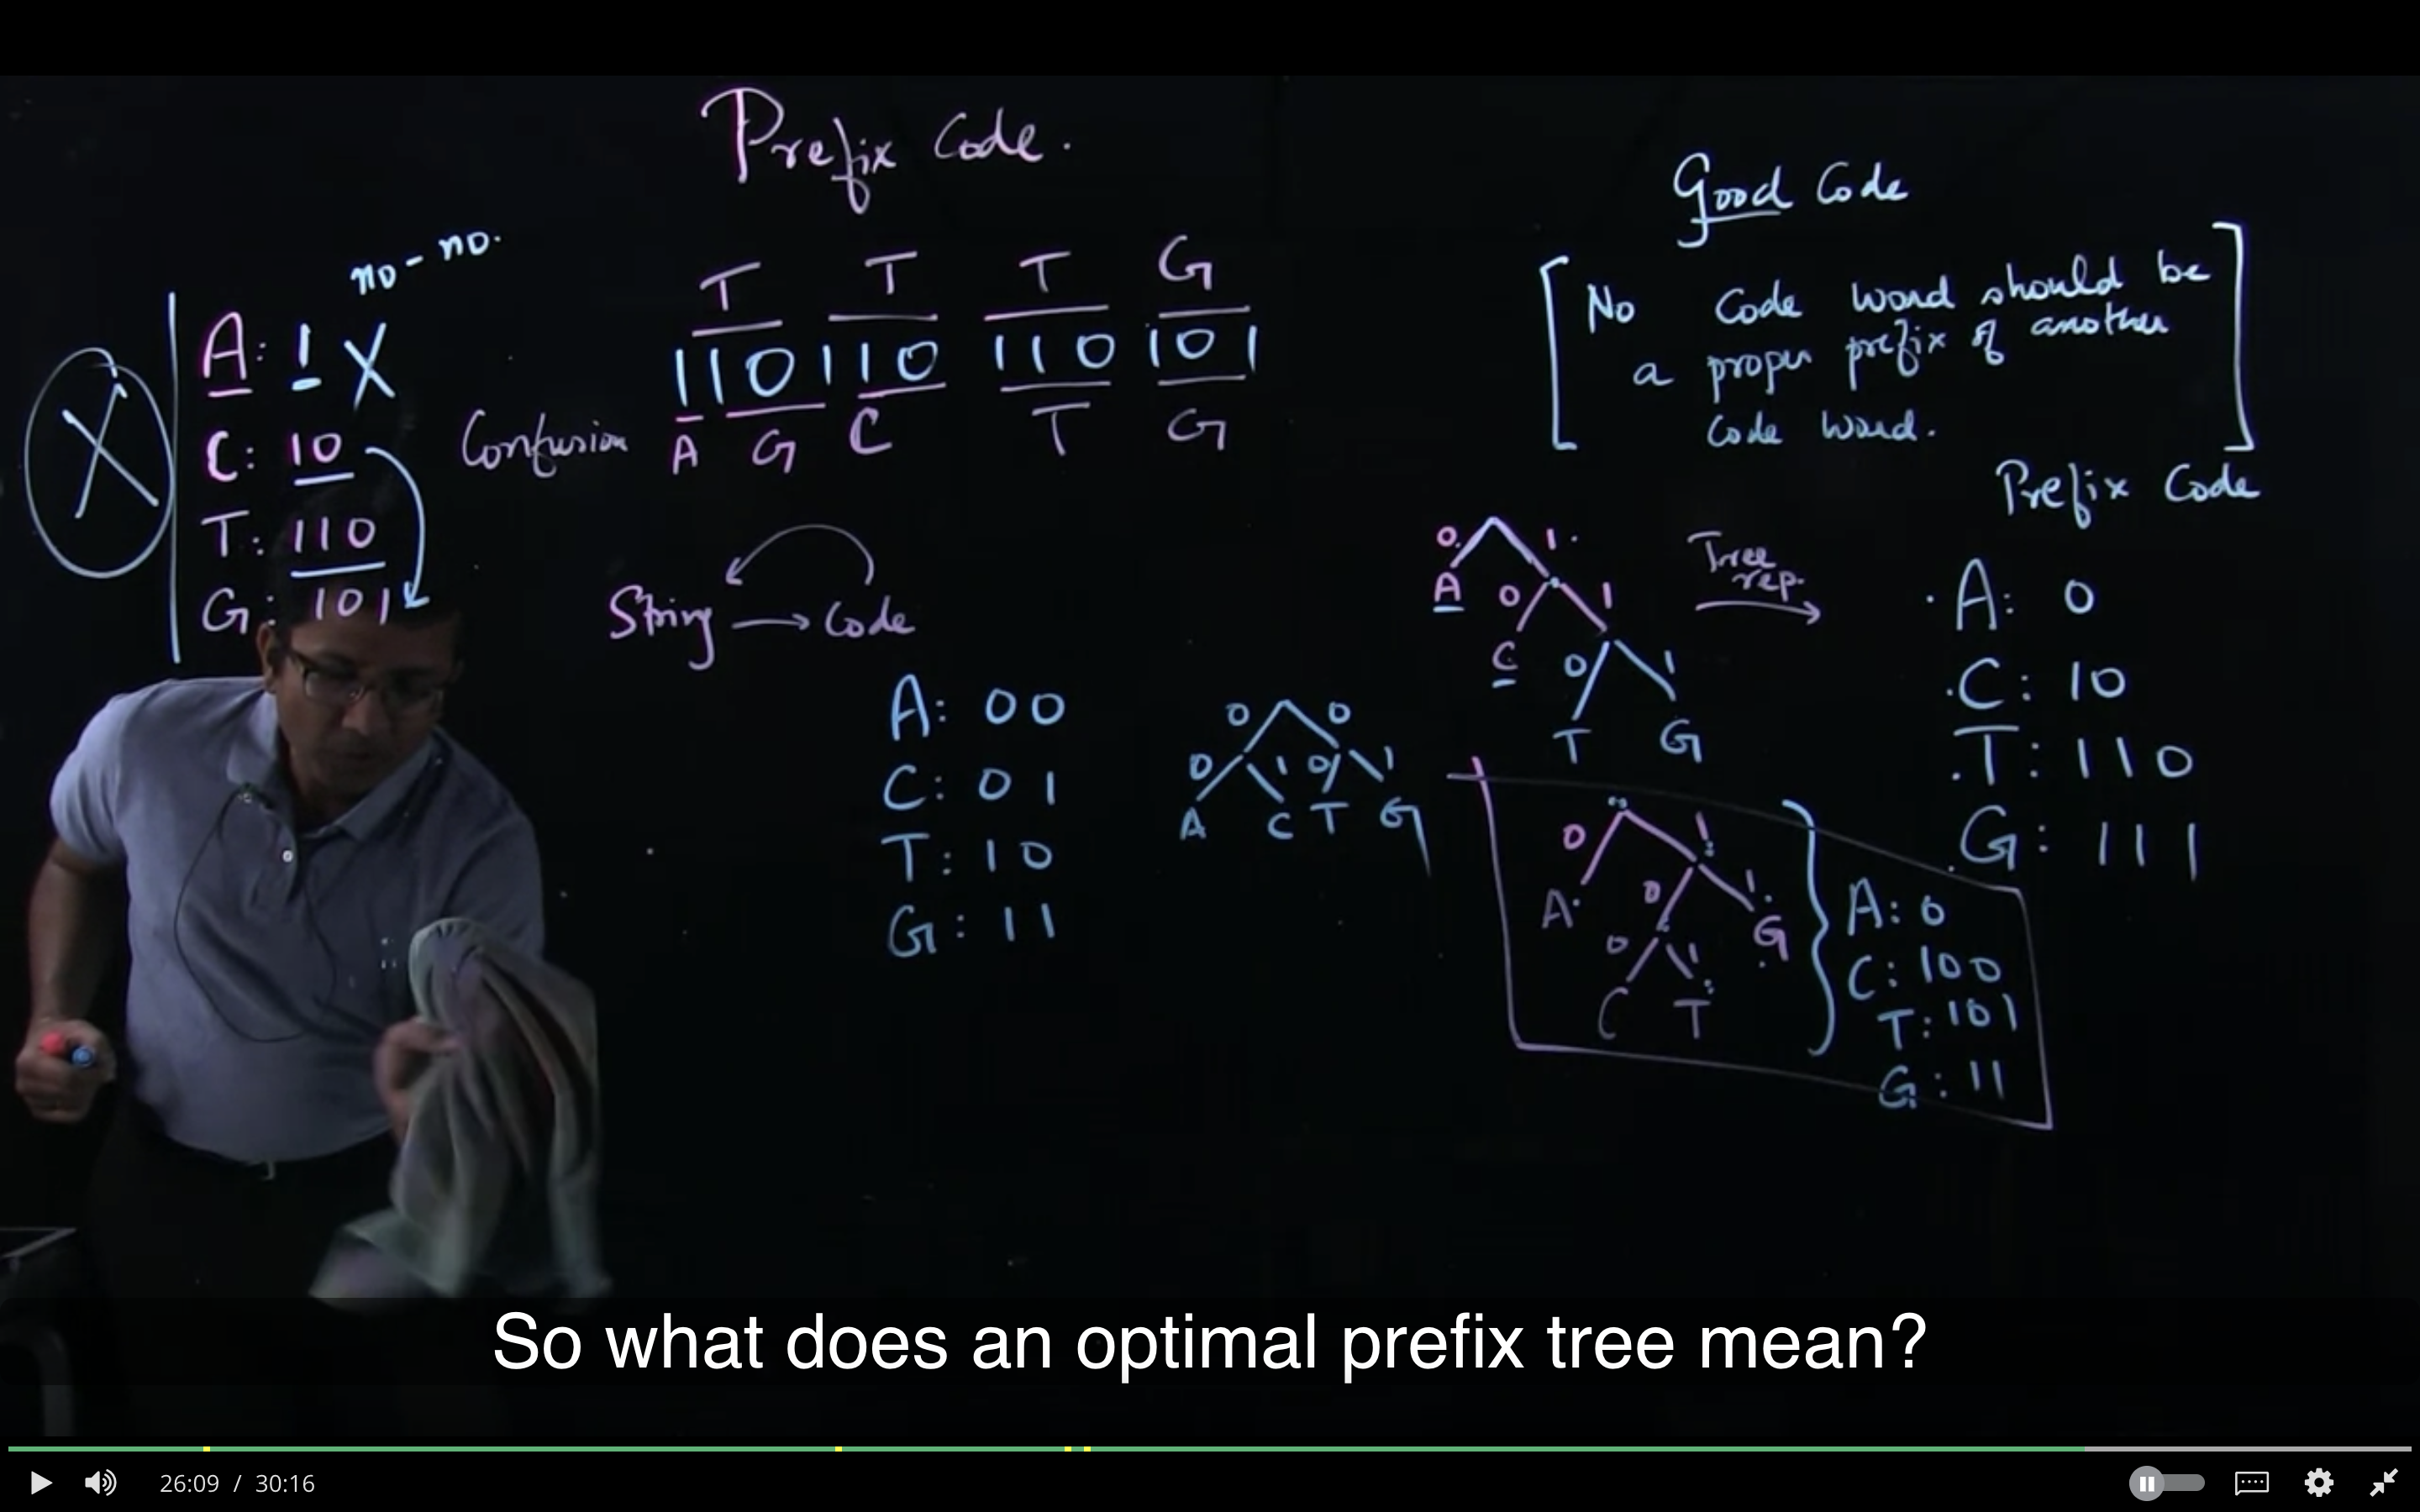 Prefix Code.
no-no.
A: 1 X
C: 10
T: 110
G: 101
X
T T T G
110110 110 101
A G C T G
Confusion
String → Code
A: 00
C: 01
T: 10
G: 11
0 0
0 1 0 1
A C T G
Good Code
[No Code word should be
a proper prefix of another
Code word.]
Prefix Code
0 1
A 0 1
C 0 1
T G
Tree
rep.
A: 0
C: 10
T: 110
G: 111
0 1
A 0 1
0 1 G
C T
A: 0
C: 100
T: 101
G: 11
So what does an optimal prefix tree mean?
26:09 / 30:16